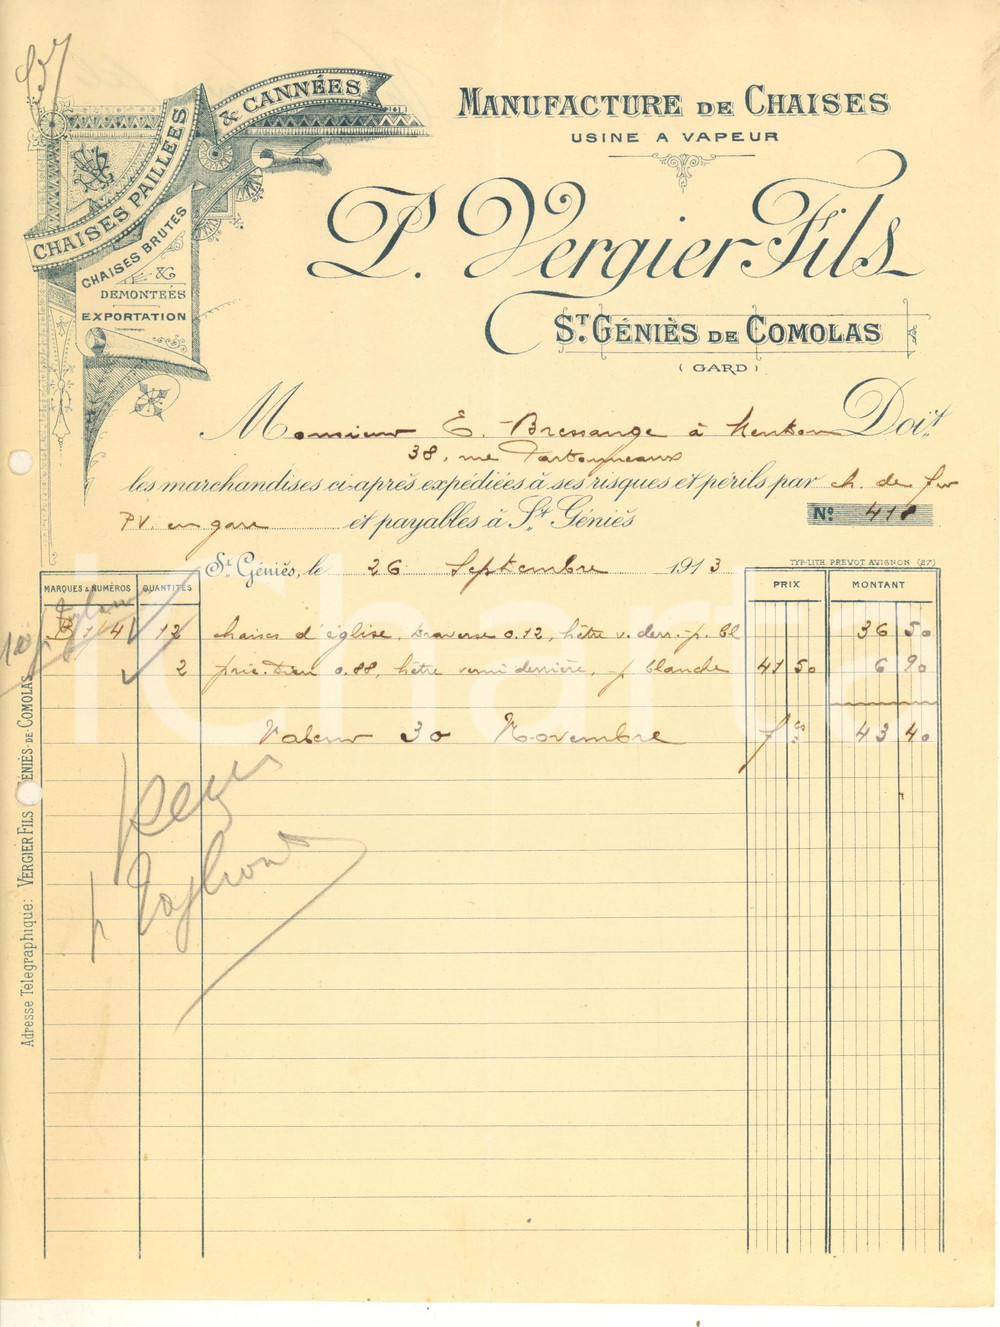 & CANNÉES
CHAISES PAILLÉES
CHAISES BRUTES
&
DEMONTEÉS
EXPORTATION
MANUFACTURE DE CHAISES
USINE A VAPEUR
P. Vergier Fils
ST. GÉNIÈS DE COMOLAS
(GARD)
Monsieur E. Bressange à Menton Doit
38, rue
les marchandises ci-après expédiées à ses risques et périls par ch. de fer
PV. en gare et payables à St. Géniès
No. 418
St. Géniès, le 26 Septembre 1913
TYP-LITH PREVOT AVIGNON (27)
MARQUES & NUMÉROS QUANTITÉS PRIX MONTANT
B 1/4 12 chaises d'église, traverse 0.12, hêtre v. derr. p. bl 36 50
2 prie-Dieu 0.88, hêtre verni derrière, p blanche 41 50 6 90
Valeur 30 Novembre fcs 43 40
Adresse Telegraphique: VERGIER FILS GÉNIES-DE-COMOLAS
iCharta